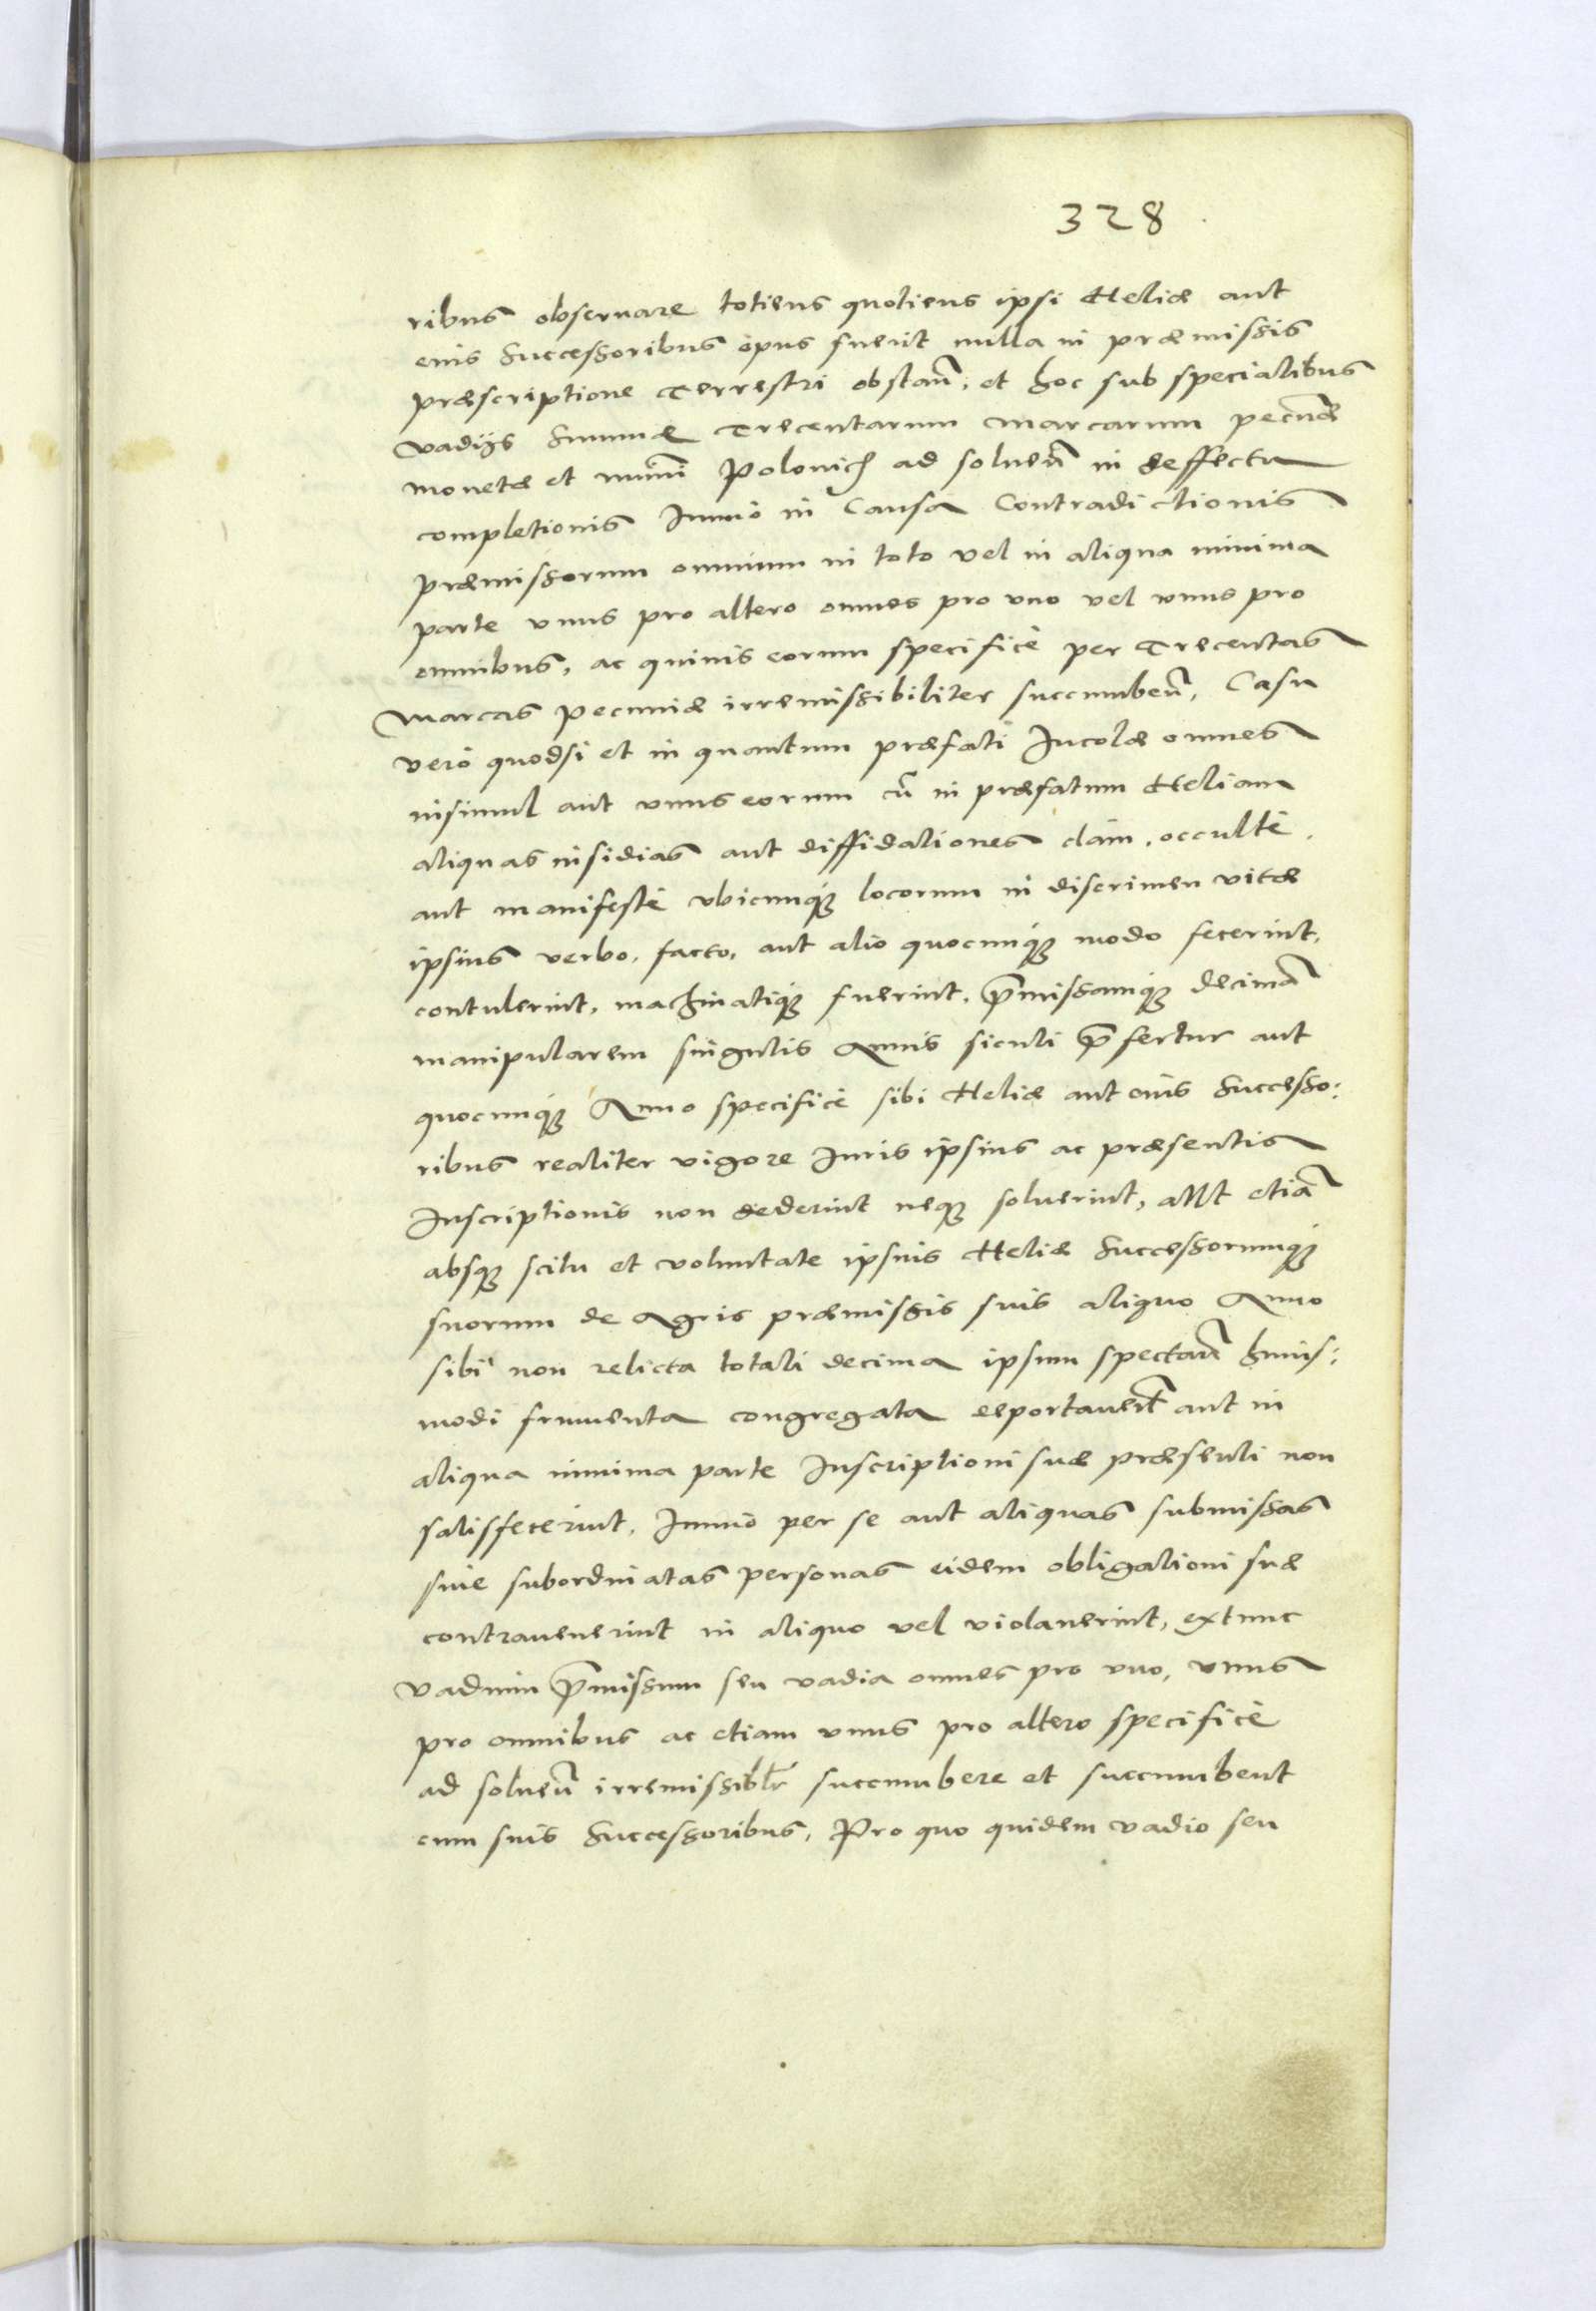 328
ribus obseruare totiens quotiens ipsi Heliæ aut
eius Successoribus opus fuerit nulla in præmissis
præscriptione Terrestri obstañ, et hoc sub specialibus
vadijs Summæ Trecentarum marcarum pecuñæ
monetæ et numi Polonich ad soluen̄ in deffectu
completionis Immò in Causa Contradictionis
præmissorum omnium in toto vel in aliqua minima
parte vnus pro altero omnes pro vno vel vnus pro
omnibus, ac quiuis eorum specificè per Trecentas
Marcas Pecuniæ irremissibiliter succumben̄, Casu
verò quodsi et in quantum præfati Incolæ omnes
insimul aut vnus eorum cū in præfatum Heliam
aliquas insidias aut diffidationes clàm, occultè,
aut manifestè vbicunq́ʒ locorum in discrimen vitæ
ipsius verbo, facto, aut alio quocunq́ʒ modo fecerint,
contulerint, machinatiq́ʒ fuerint, p̄missamq́ʒ decimā
manipularem singulis Annis sicuti p̄fertur aut
quocunq́ʒ Anno specificè sibi Heliæ aut eius Successo:
ribus realiter vigore Iuris ipsius ac præsentis
Inscriptionis non dederint neqʒ soluerint, aut etiā
absqʒ scitu et voluntate ipsius Heliæ Successorumq́ʒ
suorum de Agris præmissis suis aliquo Anno
sibi non relicta totali decima ipsum spectañ huius:
modi frumenta congregata deportauer̄t aut in
aliqua minima parte Inscriptioni suæ præsenti non
satisfecerint, Immò per se aut aliquas submissas
siue subordinatas personas eidem obligationi suæ
contrauenerint in aliquo vel violauerint, extunc
vadium p̄missum seu vadia omnes pro vno, vnus
pro omnibus ac etiam vnus pro altero specificè
ad soluen̄ irremissiblr̄ succumbere et succumbent
cum suis Successoribus, Pro quo quidem vadio seu